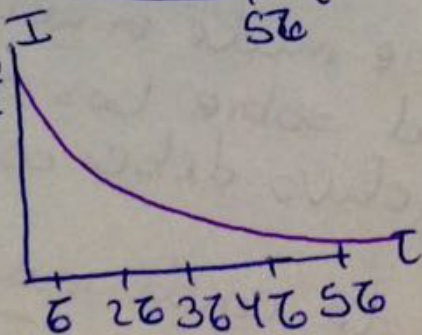 5τ
I
τ
τ 2τ 3τ 4τ 5τ